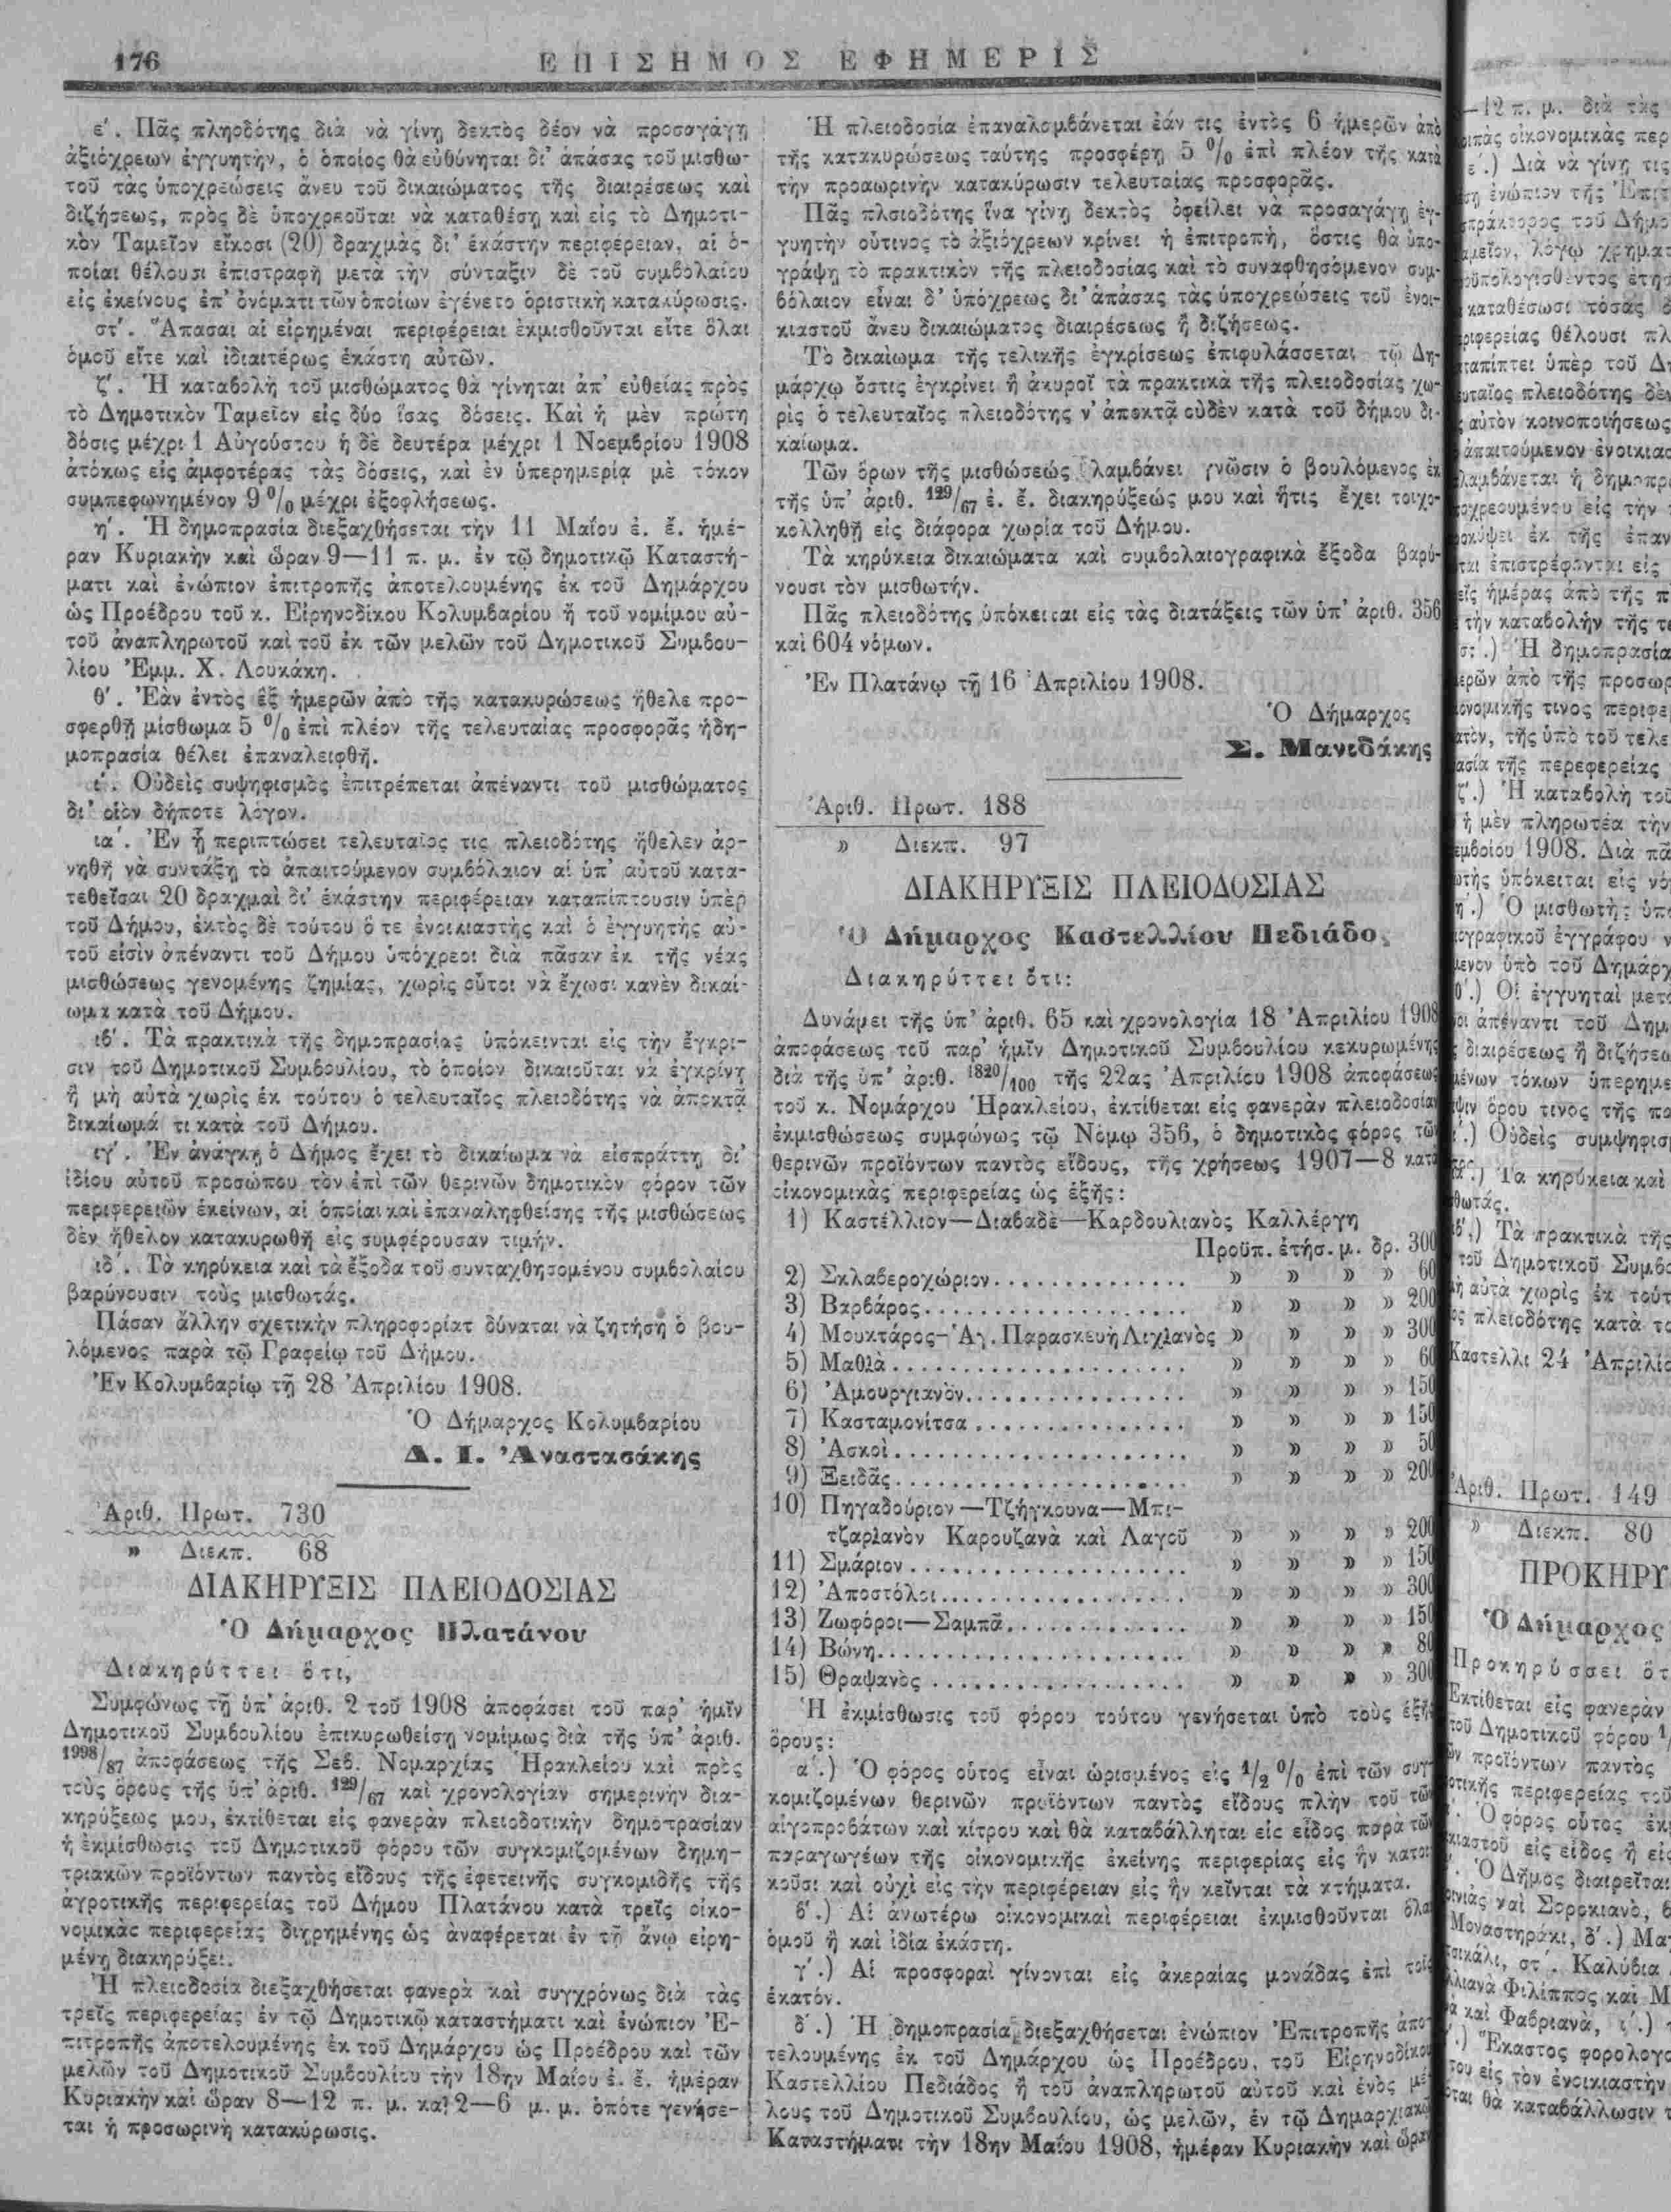 176
ΕΠΙΣΗΜΟΣ ΕΦΗΜΕΡΙΣ
ε΄. Πᾶς πληοδότης διὰ νὰ γίνῃ δεκτὸς δέον νὰ προσαγάγῃ
ἀξιόχρεων ἐγγυητὴν, ὁ ὁποίος θὰ εὐθύνηται δι' ἁπάσας τοῦ μισθω-
τοῦ τὰς ὑποχρεώσεις ἄνευ τοῦ δικαιώματος τῆς διαιρέσεως καὶ
διζήσεως, πρὸς δὲ ὑποχρεοῦται νὰ καταθέσῃ καὶ εἰς τὸ Δημοτι-
κὸν Ταμεῖον εἴκοσι (20) δραχμὰς δι' ἑκάστην περιφέρειαν, αἱ ὁ-
ποίαι θέλουσι ἐπιστραφῆ μετὰ τὴν σύνταξιν δὲ τοῦ συμβολαίου
εἰς ἐκείνους ἐπ' ὀνόματι τῶν ὁποίων ἐγένετο ὁριστικὴ κατακύρωσις.
στ΄. Ἅπασαι αἱ εἰρημέναι περιφέρειαι ἐκμισθοῦνται εἴτε ὅλαι
ὁμοῦ εἴτε καὶ ἰδιαιτέρως ἑκάστη αὐτῶν.
ζ΄. Ἡ καταβολὴ τοῦ μισθώματος θὰ γίνηται ἀπ' εὐθείας πρὸς
τὸ Δημοτικὸν Ταμεῖον εἰς δύο ἴσας δόσεις. Καὶ ἡ μὲν πρώτη
δόσις μέχρι 1 Αὐγούστου ἡ δὲ δευτέρα μέχρι 1 Νοεμβρίου 1908
ἀτόκως εἰς ἀμφοτέρας τὰς δόσεις, καὶ ἐν ὑπερημερίᾳ μὲ τόκον
συμπεφωνημένον 9 0/0 μέχρι ἐξοφλήσεως.
η΄. Ἡ δημοπρασία διεξαχθήσεται τὴν 11 Μαΐου ἐ. ἔ. ἡμέ-
ραν Κυριακὴν καὶ ὥραν 9—11 π. μ. ἐν τῷ δημοτικῷ Καταστή-
ματι καὶ ἐνώπιον ἐπιτροπῆς ἀποτελουμένης ἐκ τοῦ Δημάρχου
ὡς Προέδρου τοῦ κ. Εἰρηνοδίκου Κολυμβαρίου ἢ τοῦ νομίμου αὐ-
τοῦ ἀναπληρωτοῦ καὶ τοῦ ἐκ τῶν μελῶν τοῦ Δημοτικοῦ Συμβου-
λίου Ἐμμ. Χ. Λουκάκη.
θ΄. Ἐὰν ἐντὸς ἓξ ἡμερῶν ἀπὸ τῆς κατακυρώσεως ἤθελε προ-
σφερθῆ μίσθωμα 5 0/0 ἐπὶ πλέον τῆς τελευταίας προσφορᾶς ἡ δη-
μοπρασία θέλει ἐπαναλειφθῆ.
ι΄. Οὐδεὶς συψηφισμὸς ἐπιτρέπεται ἀπέναντι τοῦ μισθώματος
δι' οἷον δήποτε λόγον.
ια΄. Ἐν ᾗ περιπτώσει τελευταῖος τις πλειοδότης ἤθελεν ἀρ-
νηθῆ νὰ συντάξῃ τὸ ἀπαιτούμενον συμβόλαιον αἱ ὑπ' αὐτοῦ κατα-
τεθεῖσαι 20 δραχμαὶ δι' ἑκάστην περιφέρειαν καταπίπτουσιν ὑπὲρ
τοῦ Δήμου, ἐκτὸς δὲ τούτου ὅ τε ἐνοικιαστὴς καὶ ὁ ἐγγυητὴς αὐ-
τοῦ εἰσὶν ἀπέναντι τοῦ Δήμου ὑπόχρεοι διὰ πᾶσαν ἐκ τῆς νέας
μισθώσεως γενομένης ζημίας, χωρὶς οὗτοι νὰ ἔχωσι κανὲν δικαί-
ωμα κατὰ τοῦ Δήμου.
ιβ΄. Τὰ πρακτικὰ τῆς δημοπρασίας ὑπόκεινται εἰς τὴν ἔγκρι-
σιν τοῦ Δημοτικοῦ Συμβουλίου, τὸ ὁποίον δικαιοῦται νὰ ἐγκρίνῃ
ἢ μὴ αὐτὰ χωρὶς ἐκ τούτου ὁ τελευταῖος πλειοδότης νὰ ἀποκτᾷ
δικαίωμά τι κατὰ τοῦ Δήμου.
ιγ΄. Ἐν ἀνάγκῃ ὁ Δήμος ἔχει τὸ δικαίωμα νὰ εἰσπράττῃ δι'
ἰδίου αὐτοῦ προσώπου τὸν ἐπὶ τῶν θερινῶν δημοτικὸν φόρον τῶν
περιφερειῶν ἐκείνων, αἱ ὁποίαι καὶ ἐπαναληφθείσης τῆς μισθώσεως
δὲν ἤθελον κατακυρωθῆ εἰς συμφέρουσαν τιμήν.
ιδ΄. Τὰ κηρύκεια καὶ τὰ ἔξοδα τοῦ συνταχθησομένου συμβολαίου
βαρύνουσιν τοὺς μισθωτάς.
Πάσαν ἄλλην σχετικὴν πληροφορίατ δύναται νὰ ζητήσῃ ὁ βου-
λόμενος παρὰ τῷ Γραφείῳ τοῦ Δήμου.
Ἐν Κολυμβαρίῳ τῇ 28 Ἀπριλίου 1908.
Ὁ Δήμαρχος Κολυμβαρίου
Δ. Ι. Ἀναστασάκης
Ἀριθ. Πρωτ. 730
» Διεκπ. 68
ΔΙΑΚΗΡΥΞΙΣ ΠΛΕΙΟΔΟΣΙΑΣ
Ὁ Δήμαρχος Πλατάνου
Διακηρύττει ὅτι,
Συμφώνως τῇ ὑπ' ἀριθ. 2 τοῦ 1908 ἀποφάσει τοῦ παρ' ἡμῖν
Δημοτικοῦ Συμβουλίου ἐπικυρωθείσῃ νομίμως διὰ τῆς ὑπ' ἀριθ.
1998/87 ἀποφάσεως τῆς Σεβ. Νομαρχίας Ἡρακλείου καὶ πρὸς
τοὺς ὅρους τῆς ὑπ' ἀριθ. 129/67 καὶ χρονολογίαν σημερινὴν δια-
κηρύξεως μου, ἐκτίθεται εἰς φανερὰν πλειοδοτικὴν δημοπρασίαν
ἡ ἐκμίσθωσις τοῦ Δημοτικοῦ φόρου τῶν συγκομιζομένων δημη-
τριακῶν προϊόντων παντὸς εἴδους τῆς ἐφετεινῆς συγκομιδῆς τῆς
ἀγροτικῆς περιφερείας τοῦ Δήμου Πλατάνου κατὰ τρεῖς οἰκο-
νομικὰς περιφερείας διῃρημένης ὡς ἀναφέρεται ἐν τῇ ἄνω εἰρη-
μένῃ διακηρύξει.
Ἡ πλειοδοσία διεξαχθήσεται φανερὰ καὶ συγχρόνως διὰ τὰς
τρεῖς περιφερείας ἐν τῷ Δημοτικῷ καταστήματι καὶ ἐνώπιον Ἐ-
πιτροπῆς ἀποτελουμένης ἐκ τοῦ Δημάρχου ὡς Προέδρου καὶ τῶν
μελῶν τοῦ Δημοτικοῦ Συμβουλίου τὴν 18ην Μαΐου ἐ. ἔ. ἡμέραν
Κυριακὴν καὶ ὥραν 8—12 π. μ. καὶ 2—6 μ. μ. ὁπότε γενήσε-
ται ἡ προσωρινὴ κατακύρωσις.
Ἡ πλειοδοσία ἐπαναλαμβάνεται ἐάν τις ἐντὸς 6 ἡμερῶν ἀπὸ
τῆς κατακυρώσεως ταύτης προσφέρῃ 5 0/0 ἐπὶ πλέον τῆς κατὰ
τὴν προαωρινὴν κατακύρωσιν τελευταίας προσφορᾶς.
Πᾶς πλσιοδότης ἵνα γίνῃ δεκτὸς ὀφείλει νὰ προσαγάγῃ ἐγ-
γυητὴν οὗτινος τὸ ἀξιόχρεων κρίνει ἡ ἐπιτροπὴ, ὅστις θὰ ὑπο-
γράψῃ τὸ πρακτικὸν τῆς πλειοδοσίας καὶ τὸ συναφθησόμενον συμ-
βόλαιον εἶναι δ' ὑπόχρεως δι' ἁπάσας τὰς ὑποχρεώσεις τοῦ ἐνοι-
κιαστοῦ ἄνευ δικαιώματος διαιρέσεως ἢ διζήσεως.
Τὸ δικαίωμα τῆς τελικῆς ἐγκρίσεως ἐπιφυλάσσεται τῷ Δη-
μάρχῳ ὅστις ἐγκρίνει ἢ ἀκυροῖ τὰ πρακτικὰ τῆς πλειοδοσίας χω-
ρὶς ὁ τελευταῖος πλειοδότης ν' ἀποκτᾷ οὐδὲν κατὰ τοῦ δήμου δι-
καίωμα.
Τῶν ὅρων τῆς μισθώσεώς λαμβάνει γνῶσιν ὁ βουλόμενος ἐκ
τῆς ὑπ' ἀριθ. 129/67 ἐ. ἔ. διακηρύξεώς μου καὶ ἥτις ἔχει τοιχο-
κολληθῆ εἰς διάφορα χωρία τοῦ Δήμου.
Τὰ κηρύκεια δικαιώματα καὶ συμβολαιογραφικὰ ἔξοδα βαρύ-
νουσι τὸν μισθωτήν.
Πᾶς πλειοδότης ὑπόκειται εἰς τὰς διατάξεις τῶν ὑπ' ἀριθ. 356
καὶ 604 νόμων.
Ἐν Πλατάνῳ τῇ 16 Ἀπριλίου 1908.
Ὁ Δήμαρχος
Σ. Μανιδάκης
Ἀριθ. Πρωτ. 188
» Διεκπ. 97
ΔΙΑΚΗΡΥΞΙΣ ΠΛΕΙΟΔΟΣΙΑΣ
Ὁ Δήμαρχος Καστελλίου Πεδιάδο
Διακηρύττει ὅτι:
Δυνάμει τῆς ὑπ' ἀριθ. 65 καὶ χρονολογία 18 Ἀπριλίου 1908
ἀποφάσεως τοῦ παρ' ἡμῖν Δημοτικοῦ Συμβουλίου κεκυρωμένης
διὰ τῆς ὑπ' ἀριθ. 1820/100 τῆς 22ας Ἀπριλίου 1908 ἀποφάσεως
τοῦ κ. Νομάρχου Ἡρακλείου, ἐκτίθεται εἰς φανερὰν πλειοδοσίαν
ἐκμισθώσεως συμφώνως τῷ Νόμῳ 356, ὁ δημοτικὸς φόρος τῶν
θερινῶν προϊόντων παντὸς εἴδους, τῆς χρήσεως 1907—8 κατὰ
οἰκονομικὰς περιφερείας ὡς ἑξῆς:
1) Καστέλλιον—Διαβαδὲ—Καρδουλιανὸς Καλλέργη
Προϋπ. ἐτήσ. μ. δρ. 300
2) Σκλαβεροχώριον.............. » » » » 60
3) Βαρβάρος................... » » » » 200
4) Μουκτάρος-Ἁγ. Παρασκευὴ Λιχλανὸς » » » » 300
5) Μαθιὰ..................... » » » » 60
6) Ἀμουργιανὸν................ » » » » 150
7) Κασταμονίτσα............... » » » » 150
8) Ἀσκοὶ..................... » » » » 50
9) Ξειδᾶς..................... » » » » 200
10) Πηγαδούριον—Τζήγκουνα—Μπι-
τζαριανὸν Καρουζανὰ καὶ Λαγοῦ » » » » 200
11) Σμάριον.................... » » » » 150
12) Ἀποστόλοι.................. » » » » 300
13) Ζωφόροι—Σαμπᾶ............. » » » » 150
14) Βώνη...................... » » » » 80
15) Θραψανὸς.................. » » » » 300
Ἡ ἐκμίσθωσις τοῦ φόρου τούτου γενήσεται ὑπὸ τοὺς ἑξῆς
ὅρους:
α΄.) Ὁ φόρος οὗτος εἶναι ὡρισμένος εἰς 1/2 0/0 ἐπὶ τῶν συγ
κομιζομένων θερινῶν προϊόντων παντὸς εἴδους πλὴν τοῦ τῶν
αἰγοπροβάτων καὶ κίτρου καὶ θὰ καταβάλληται εἰς εἶδος παρὰ τῶν
παραγωγέων τῆς οἰκονομικῆς ἐκείνης περιφερίας εἰς ἣν κατοι
κοῦσι καὶ οὐχὶ εἰς τὴν περιφέρειαν εἰς ἣν κεῖνται τὰ κτήματα.
β΄.) Αἱ ἀνωτέρω οἰκονομικαὶ περιφέρειαι ἐκμισθοῦνται ὅλαι
ὁμοῦ ἢ καὶ ἰδία ἑκάστη.
γ΄.) Αἱ προσφοραὶ γίνονται εἰς ἀκεραίας μονάδας ἐπὶ τοῖς
ἑκατόν.
δ΄.) Ἡ δημοπρασία διεξαχθήσεται ἐνώπιον Ἐπιτροπῆς ἀπο
τελουμένης ἐκ τοῦ Δημάρχου ὡς Προέδρου, τοῦ Εἰρηνοδίκου
Καστελλίου Πεδιάδος ἢ τοῦ ἀναπληρωτοῦ αὐτοῦ καὶ ἑνὸς μέ
λους τοῦ Δημοτικοῦ Συμβουλίου, ὡς μελῶν, ἐν τῷ Δημαρχιακῷ
Καταστήματι τὴν 18ην Μαΐου 1908, ἡμέραν Κυριακὴν καὶ ὥραν
—12 π. μ. διὰ τὰς
οἰκονομικὰς περ
ε΄.) Διὰ νὰ γίνῃ τις
ἐνώπιον τῆς Ἐπιτ
τοῦ Δήμο
λόγῳ χρηματ
ἐτησ
καταθέσωσι τόσας δ
θέλουσι πλ
ὑπὲρ τοῦ Δ
πλειοδότης δὲν
αὐτὸν κοινοποιήσεως
ἀπαιτούμενον ἐνοικιασ
ἡ δημοπρ
εἰς τὴν
ἐκ τῆς ἐπαν
ἐπιστρέφονται εἰς
ἡμέρας ἀπὸ τῆς π
τὴν καταβολὴν τῆς τε
Ἡ δημοπρασία
ἀπὸ τῆς προσωρ
τινος περιφε
τῆς ὑπὸ τοῦ τελε
τῆς περεφερείας
ζ΄.) Ἡ καταβολὴ τοῦ
ἡ μὲν πληρωτέα τὴν
1908. Διὰ πᾶ
ὑπόκειται εἰς νό
η΄.) Ὁ μισθωτὴς ὑπο
ἐγγράφου ν
ὑπὸ τοῦ Δημάρχ
θ΄.) Οἱ ἐγγυηταὶ μετὰ
ἀπέναντι τοῦ Δημ
διαιρέσεως ἢ διζήσεω
τόκων ὑπερημε
ὅρου τινος τῆς πα
ι΄.) Οὐδεὶς συμψηφισμ
Τα κηρύκεια καὶ
Τὰ πρακτικὰ τῆς
τοῦ Δημοτικοῦ Συμβο
αὐτὰ χωρὶς ἐκ τούτ
πλειοδότης κατὰ το
Καστελλι 24 Ἀπριλίο
Ἀριθ. Πρωτ. 149
» Διεκπ. 80
ΠΡΟΚΗΡΥ
Ὁ Δήμαρχος
Προκηρύσσει ὅτ
Ἐκτίθεται εἰς φανερὰν
τοῦ Δημοτικοῦ φόρου
προϊόντων παντὸς
περιφερείας τοῦ
Ὁ φόρος οὗτος ἐκ
εἰς εἶδος ἢ εἰς
Ὁ Δῆμος διαιρεῖται
καὶ Σοροκιανὸ, β
Μοναστηράκι, δ΄.) Μα
στ΄. Καλύβια
Φιλίππος καὶ Μ
καὶ Φαβριανὰ, ι΄.)
Ἕκαστος φορολογο
εἰς τὸν ἐνοικιαστὴν
θὰ καταβάλλωσιν τ